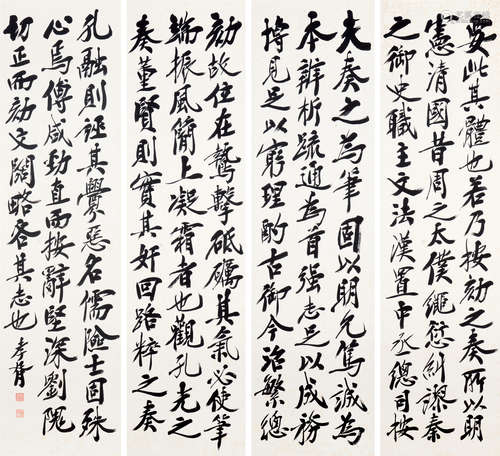 要此其體也若乃按劾之奏所以明
憲清國昔周之太僕繩愆糾謬秦
之御史職主文法漢置中丞總司按
夫奏之為筆固以明允篤誠為
本辨析疏通為首强志足以成務
博見足以窮理酌古御今治繁總
劾故位在鷙擊砥礪其氣必使筆
端振風簡上凝霜者也觀孔光之
奏董賢則實其奸回路粹之奏
孔融則誣其釁惡名儒險士固殊
心焉傅咸勁直而按辭堅深劉隗
切正而劾文闊略各其志也 孝胥